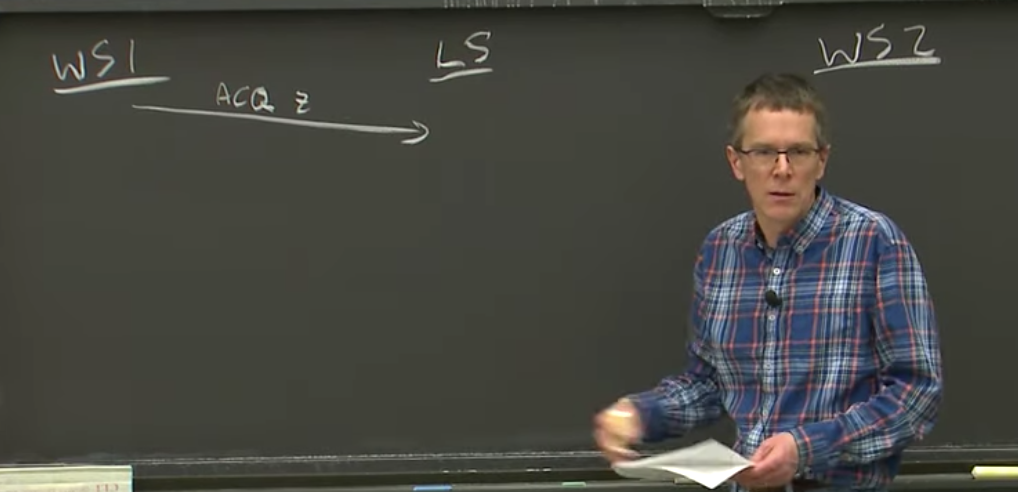 WS1
LS
WS2
ACQ z